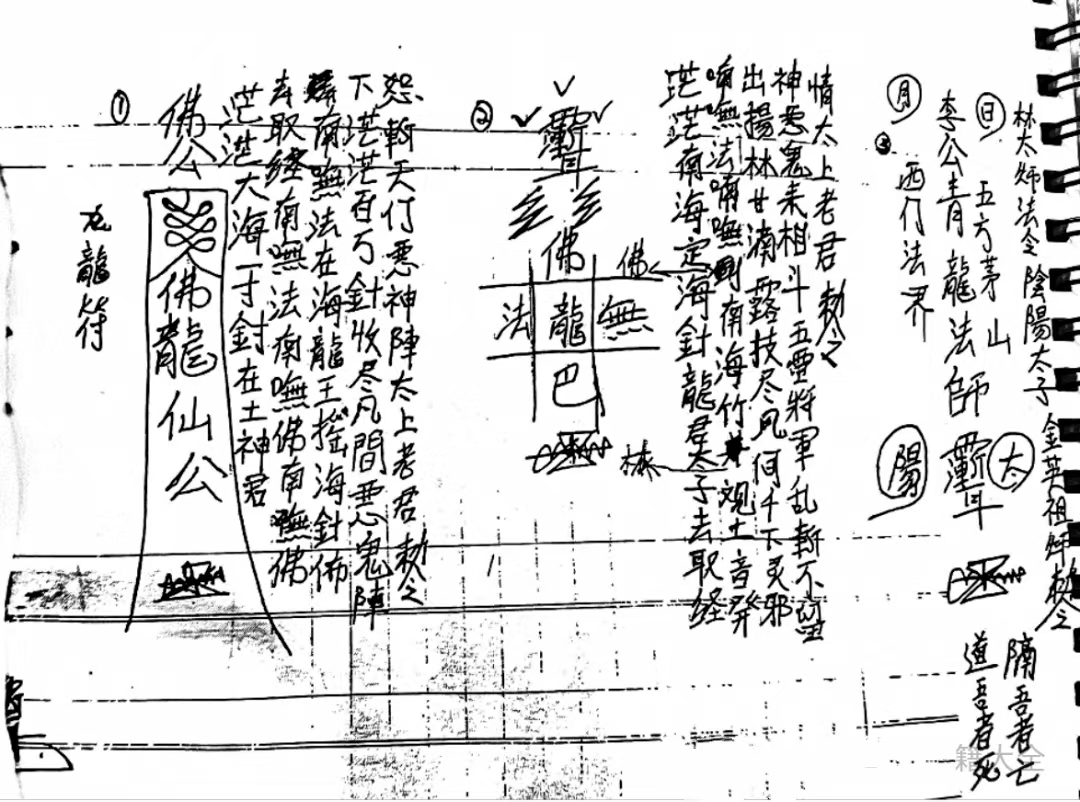 林太师法令陰陽太子 金英祖师敕令
日 五方茅山
李公青龍法師 太
月
③ 西行法界 陽
隔吾者亡
道吾者死
②
佛 佛
法 龍 無
巴
林
情太上老君敕令
神惡鬼未相斗五雷將軍乱斬不留
出揚林甘滿露技尽凡间千下灵邪
喃無法喃嘸 南海竹 观土音発
茫茫南海定海針龍君太子去取经
①
佛公
佛龍仙公
九龍符
茫茫大海一寸針在土神君
去取经南嘸法南嘸佛南嘸佛
南嘸法在海龍王摇海針佈
下茫茫百万針收尽凡間惡鬼陣
怨斬天行惡神陣太上老君敕令
籍大全